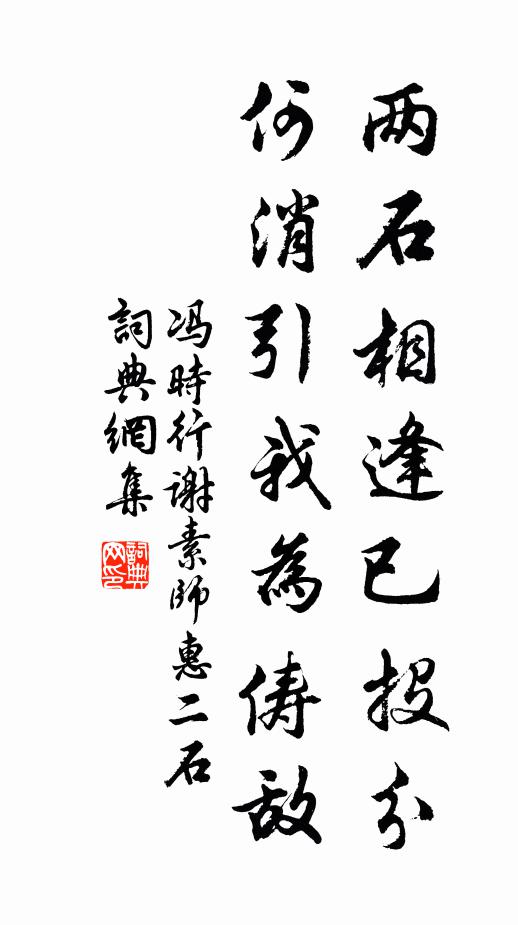 两石相逢已投分
何消引我为俦敌
冯時行谢素師惠二石
詞典網集
詞典网印